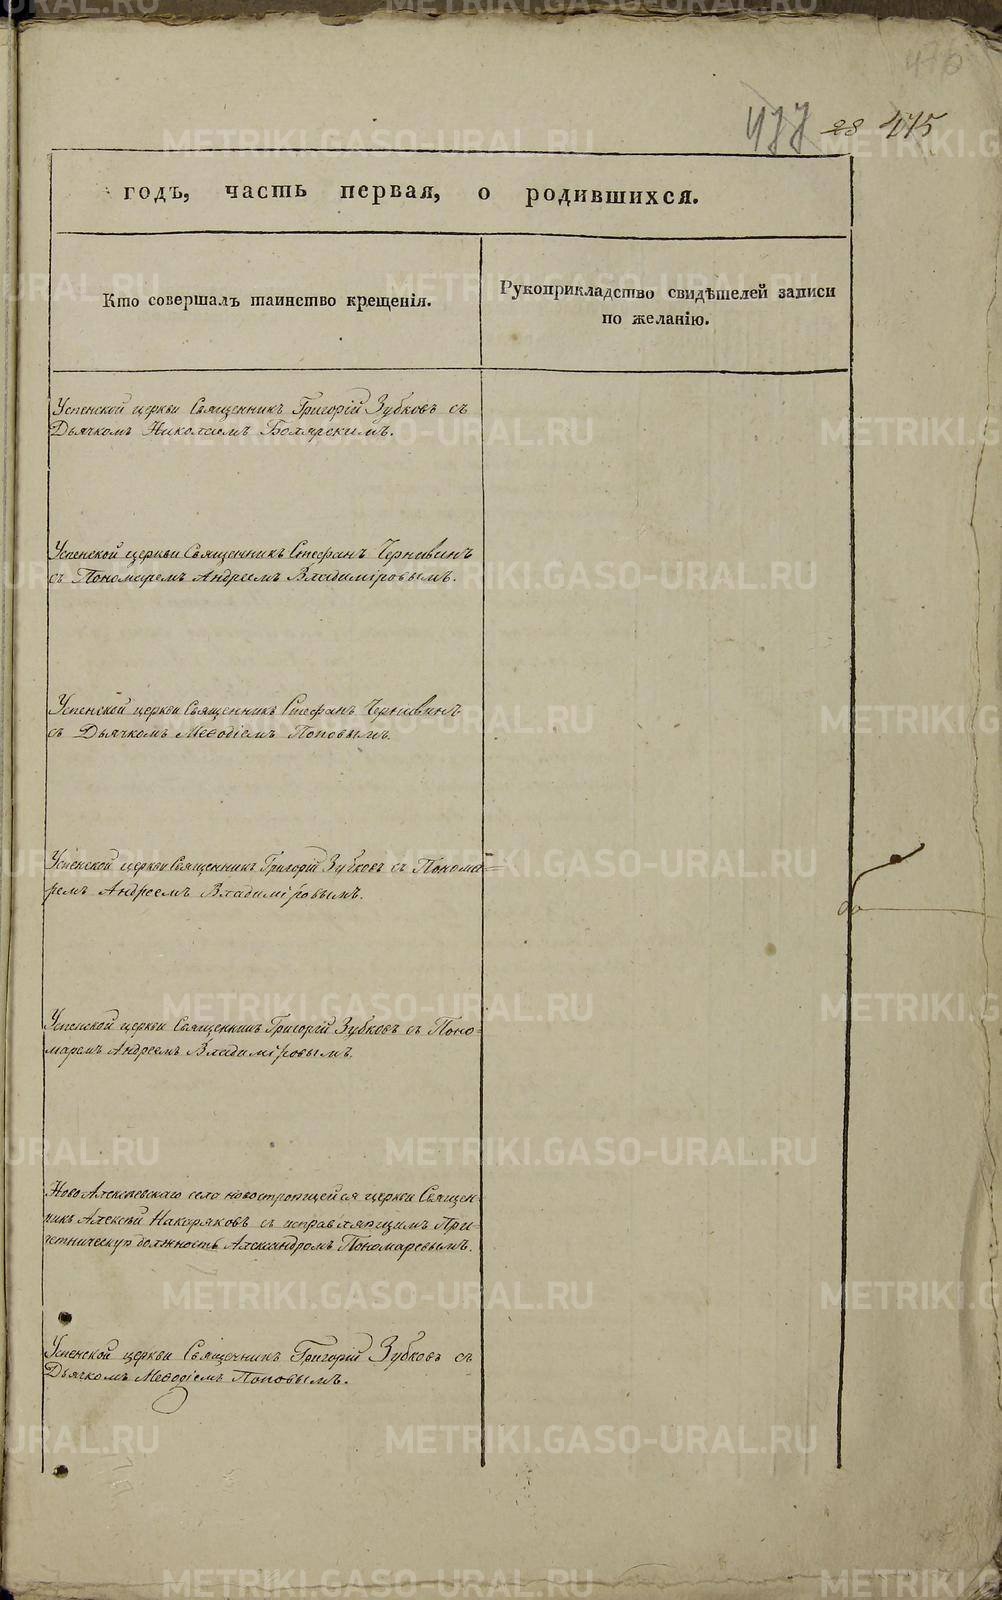 477 28 475
годъ, часть первая, о родившихся.
Кто совершалъ таинство крещенія.
Рукоприкладство свидѣтелей записи
по желанію.
Успенской церкви Священникъ Григорій Зубковъ съ
Дьячкомъ Николаемъ Боярскимъ.
Успенской церкви Священникъ Стефанъ Чернавинъ
съ Пономаремъ Андреемъ Владиміровымъ.
Успенской церкви Священникъ Стефанъ Чернавинъ
съ Дьячкомъ Меѳодіемъ Поповымъ.
Успенской церкви Священникъ Григорій Зубковъ съ Понома=
ремъ Андреемъ Владиміровымъ.
Успенской церкви Священникъ Григорій Зубковъ съ Поно=
маремъ Андреемъ Владиміровымъ.
Ново Алексѣевскаго села новостроющейся церкви Священ-
никъ Алексѣй Накаряковъ съ исправляющимъ При-
четническую должность Александромъ Пономаревымъ.
Успенской церкви Священникъ Григорій Зубковъ съ
Дьячкомъ Меѳодіемъ Поповымъ.
METRIKI.GASO-URAL.RU